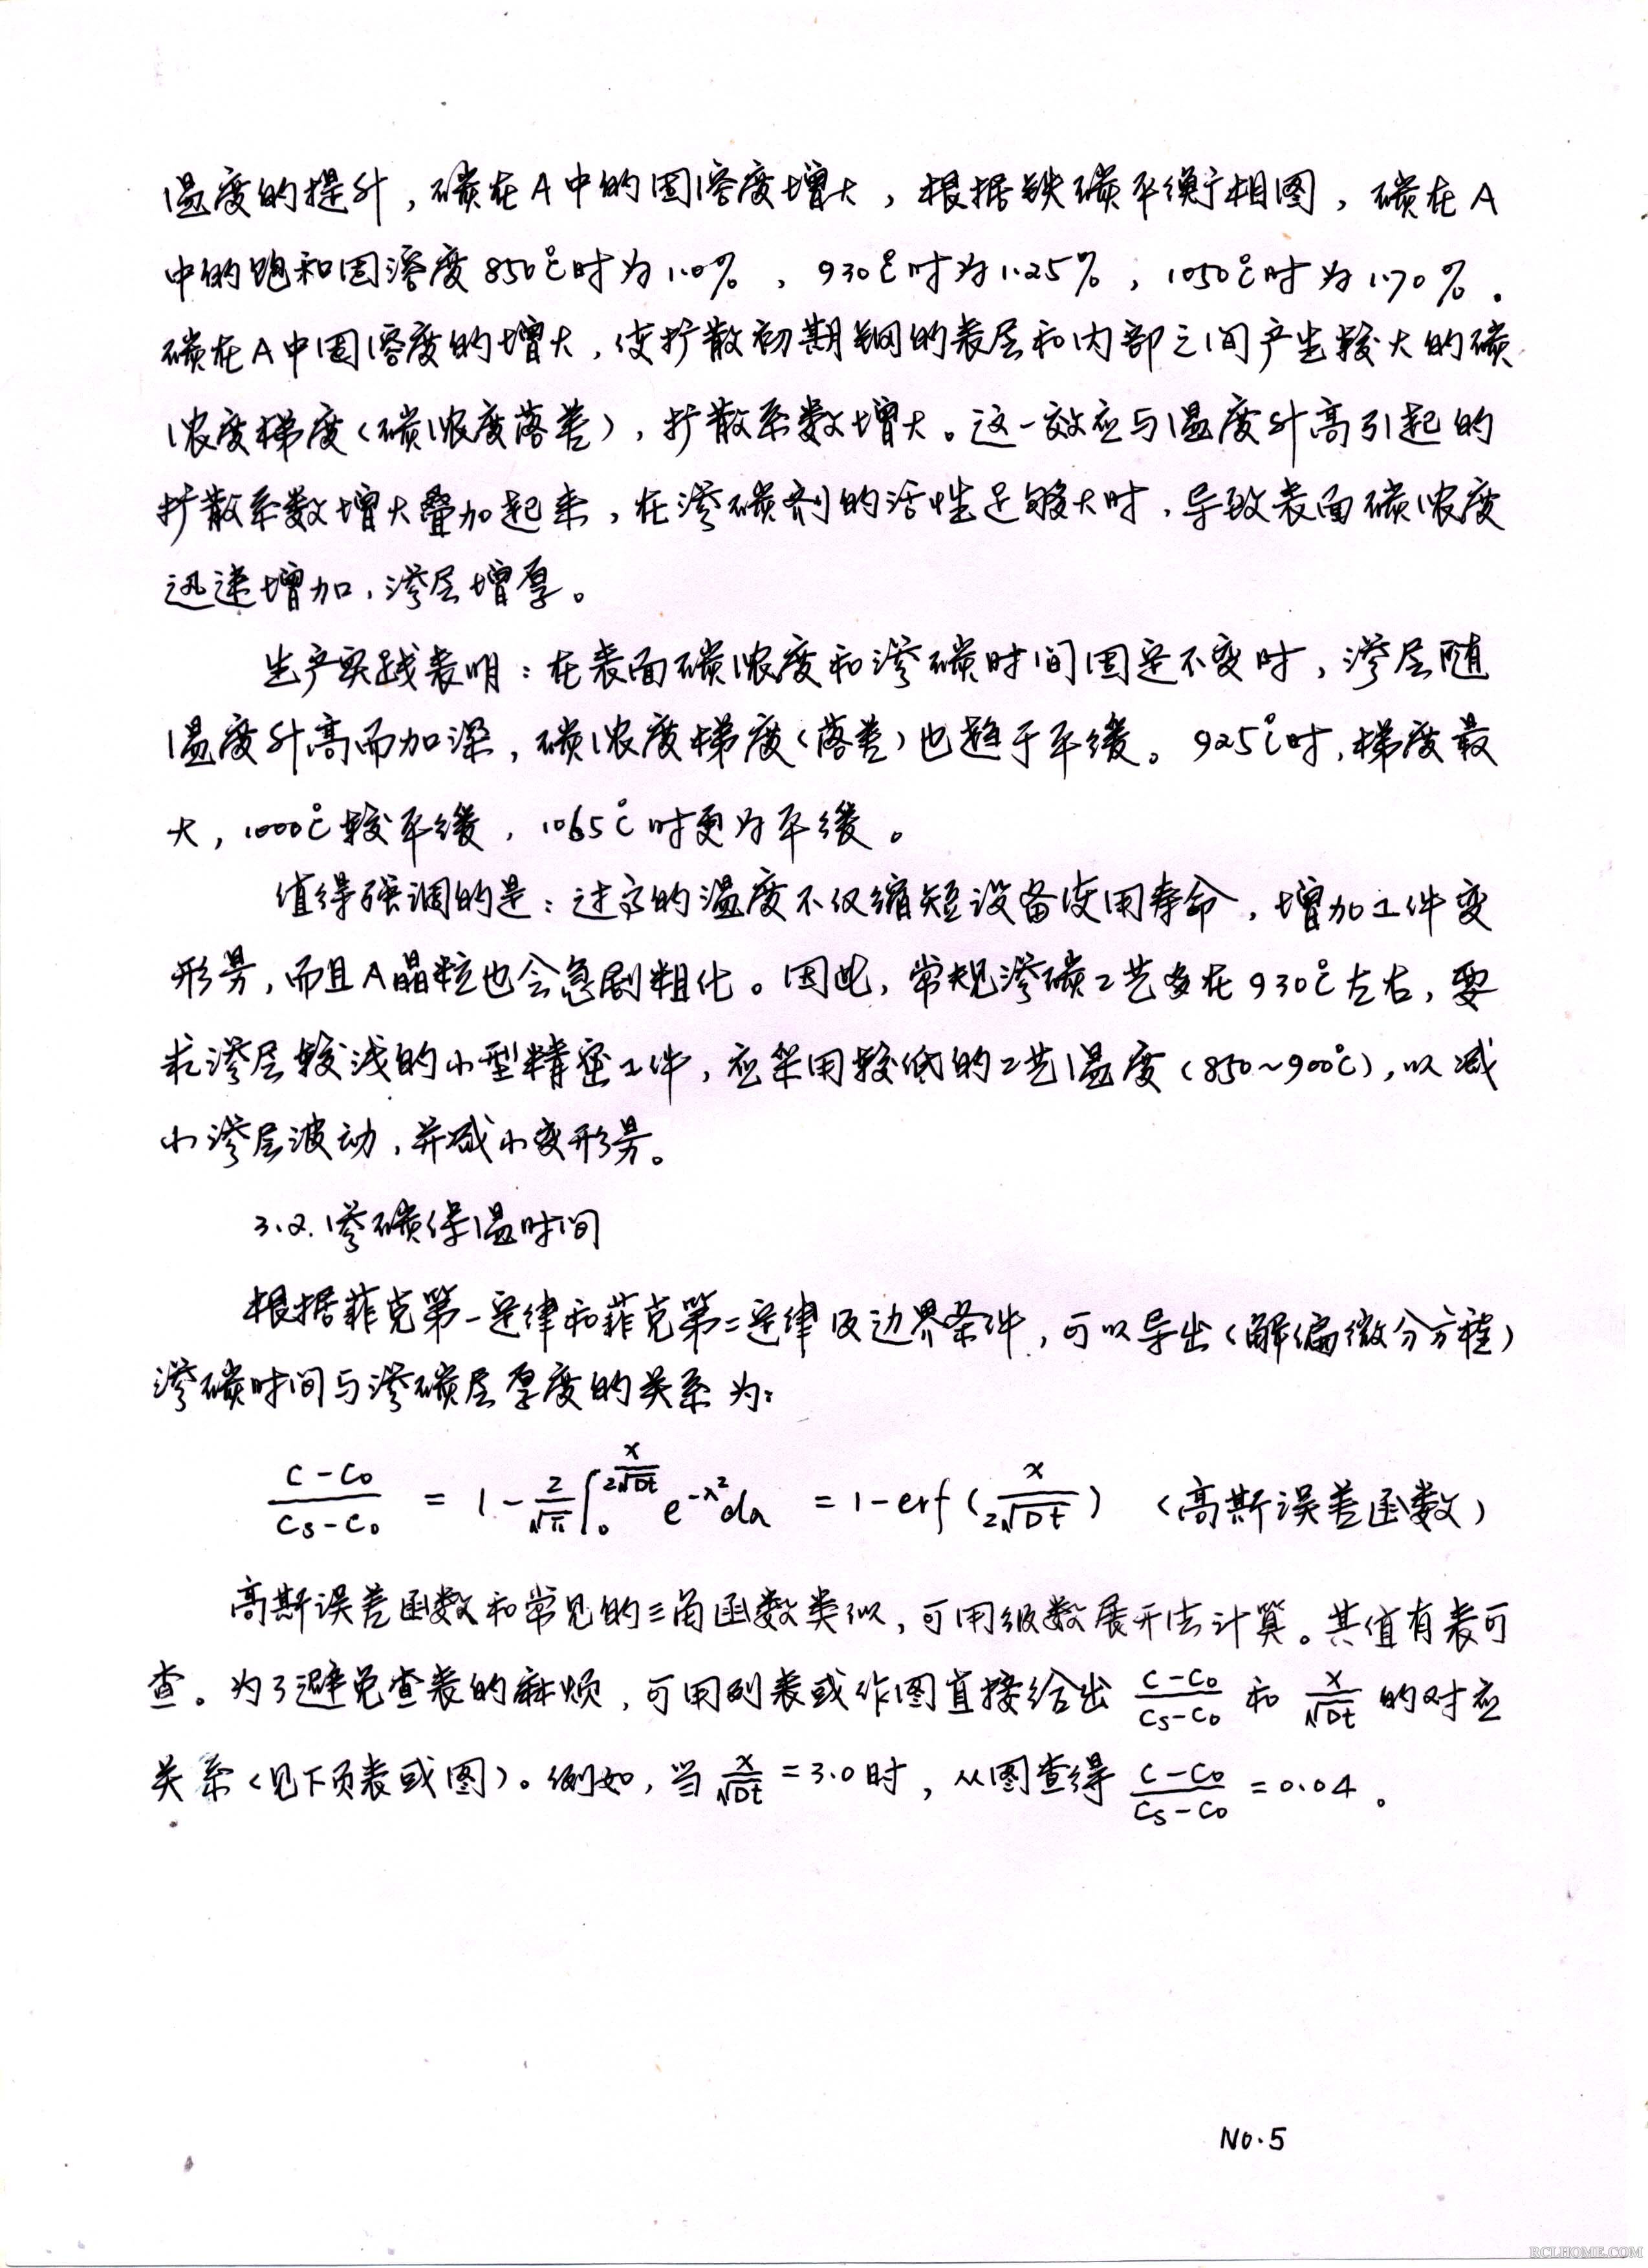 温度的提升，碳在A中的固溶度增大，根据铁碳平衡相图，碳在A
中的饱和固溶度850℃时为1.0%，930℃时为1.25%，1050℃时为1.70%。
碳在A中固溶度的增大，使扩散初期钢的表层和内部之间产生较大的碳
浓度梯度（碳浓度落差），扩散系数增大。这一效应与温度升高引起的
扩散系数增大叠加起来，在渗碳剂的活性足够大时，导致表面碳浓度
迅速增加，渗层增厚。
生产实践表明：在表面碳浓度和渗碳时间固定不变时，渗层随
温度升高而加深，碳浓度梯度（落差）也趋于平缓。925℃时，梯度最
大，1000℃较平缓，1065℃时更为平缓。
值得强调的是：过高的温度不仅缩短设备使用寿命，增加工件变
形量，而且A晶粒也会急剧粗化。因此，常规渗碳工艺多在930℃左右，要
求渗层较浅的小型精密工件，应采用较低的工艺温度（850~900℃），以减
小渗层波动，并减小变形量。
3.2.渗碳保温时间
根据菲克第一定律和菲克第二定律及边界条件，可以导出（解偏微分方程）
渗碳时间与渗碳层厚度的关系为：
(C-C₀)/(Cs-C₀) = 1-2/√π ∫₀^(x/(2√Dt)) e^(-λ²)dλ = 1-erf(x/(2√Dt)) （高斯误差函数）
高斯误差函数和常见的三角函数类似，可用级数展开法计算。其值有表可
查。为了避免查表的麻烦，可用列表或作图直接给出 (C-C₀)/(Cs-C₀) 和 x/√Dt 的对应
关系（见下页表或图）。例如，当 x/√Dt =3.0时，从图查得 (C-C₀)/(Cs-C₀) =0.04。
No.5
RCLHOME.COM